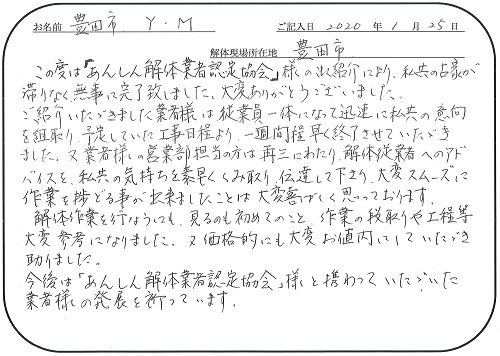 お名前 豊田市 Y・M ご記入日 2020年1月25日
解体現場所在地 豊田市
この度は「あんしん解体業者認定協会」様の御紹介により、私共の古家が
滞りなく無事に完了致しました、大変ありがとうございました。
ご紹介いただきました業者様は従業員一体になって迅速に私共の意向
を組取り、予定していた工事日程より、一週間程早く終了させていただき
ました。又業者様の営業部担当の方は再三にわたり、解体従業者へのアド
バイスを、私共の気持ちを素早くくみ取り、伝達して下さり、大変スムーズに
作業を捗どる事が出来ましたことは大変喜ばしく思っております。
解体作業を行なうにも、見るのも初めてのこと、作業の段取りや工程等
大変参考になりました。又価格的にも大変お値内にしていただき
助りました。
今後は「あんしん解体業者認定協会」様と携わっていただいた
業者様の発展を祈っています。